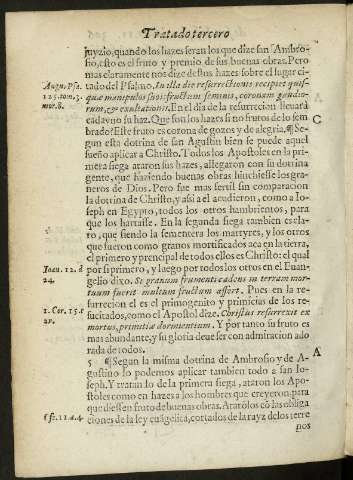 Tratado tercero
juyzio, quando los hazes seran los que dize san Ambro-
sio, esto es el fruto y premio de sus buenas obras. Pero
mas claramente nos dize destos hazes sobre el lugar ci-
tado del Psalmo. In illa die resurrectionis recipiet quis-
quæ manipulos suos: fructum seminis, coronam gaudio-
rum, & exultationis. En el dia de la resurrecion lleuará
cada vno su haz. Que son los hazes si no frutos de lo sem-
brado? Este fruto es corona de gozos y de alegria. ¶ Se-
gun esta dotrina de san Agustin bien se puede aquel
sueño aplicar a Christo. Todos los Apostoles en la pri-
mera siega ataron sus hazes, allegaron con su dotrina
gente, que haziendo buenas obras hinchiesse los gra-
neros de Dios. Pero fue mas fertil sin comparacion
la dotrina de Christo, y assi a el acudieron, como a Io-
seph en Egypto, todos los otros hambrientos, para
que los hartasse. En la segunda siega tambien es cla-
ro, que siendo la sementera los martyres, y los otros
que fueron como granos mortificados aca en la tierra,
el primero y prencipal de todos ellos es Christo: el qual
por si primero, y luego por todos los otros en el Euan-
gelio dixo. Si granum frumenti cadens in terram mor-
tuum fuerit multum fructum affert. Pues en la re-
surrecion el es el primogenito y primicias de los re-
sucitados, como el Apostol dize. Christus resurrexit ex
mortus, primitiæ dormientium. Y por tanto su fruto es
mas abundante, y su gloria deue ser con admiracion ado
rada de todos.
5 ¶ Segun la misma dotrina de Ambrosio y de A-
gustino lo podemos aplicar tambien todo a san Io-
seph. Y tratan lo de la primera siega, ataron los Apo-
stoles como en hazes a los hombres que creyeron, para
que diessen fruto de buenas obras. Ataró los cō las obliga
ciones de la ley euãgelica, cortados de la rayz de los terre
nos
Aug. in Psa.
125. tom. 3.
mor. 8.
C
Ioan. 12. d
24.
1. Cor. 15. c
A